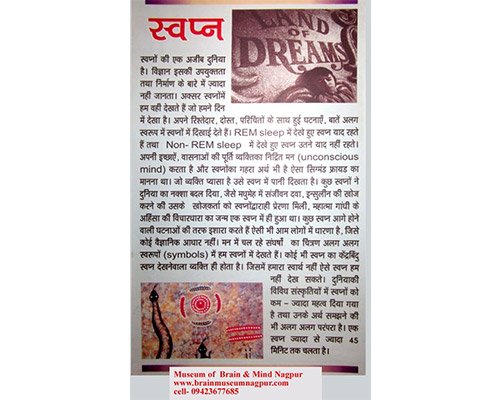 स्वप्न
LAND
OF
DREAMS
स्वप्नों की एक अजीब दुनिया
है। विज्ञान इसकी उपयुक्तता
तथा निर्माण के बारे में ज्यादा
नही जानता। अक्सर स्वप्नोंमें
हम वही देखते हैं जो हमने दिन
में देखा है। अपने रिश्तेदार, दोस्त, परिचितों के साथ हुई घटनाएँ, बातें अलग
स्वरूप में स्वप्नों में दिखाई देते हैं। REM sleep में देखे हुए स्वप्न याद रहते
हैं तथा Non- REM sleep में देखे हुए स्वप्न उतने याद नहीं रहते।
अपनी इच्छाएँ, वासनाओं की पूर्ति व्यक्तिका निद्रित मन (unconscious
mind) करता है और स्वप्नोंका गहरा अर्थ भी है ऐसा सिग्मंड फ्रायड का
मानना था। जो व्यक्ति प्यासा है उसे स्वप्न में पानी दिखता है। कुछ स्वप्नों ने
दुनिया का नक्शा बदल दिया, जैसे मधुमेह में संजीवन दवा, इन्सुलीन की खोज
करने की उसके खोजकर्ता को स्वप्नोंद्वाराही प्रेरणा मिली, महात्मा गांधी के
अहिंसा की विचारधारा का जन्म एक स्वप्न में ही हुआ था। कुछ स्वप्न आगे होने
वाली घटनाओं की तरफ इशारा करते हैं ऐसी भी आम लोगों में धारणा है, जिसे
कोई वैज्ञानिक आधार नहीं। मन में चल रहे संघर्षों का चित्रण अलग अलग
स्वरूपों (symbols) में हम स्वप्नों में देखते हैं। कोई भी स्वप्न का केंद्रबिंदु
स्वप्न देखनेवाला व्यक्ति ही होता है। जिसमें हमारा स्वार्थ नहीं ऐसे स्वप्न हम
नहीं देख सकते। दुनियाकी
विविध संस्कृतियों में स्वप्नों को
कम - ज्यादा महत्व दिया गया
है तथा उनके अर्थ समझने की
भी अलग अलग परंपरा है। एक
स्वप्न ज्यादा से ज्यादा 45
मिनिट तक चलता है।
Museum of Brain & Mind Nagpur
www.brainmuseumnagpur.com
cell- 09423677685